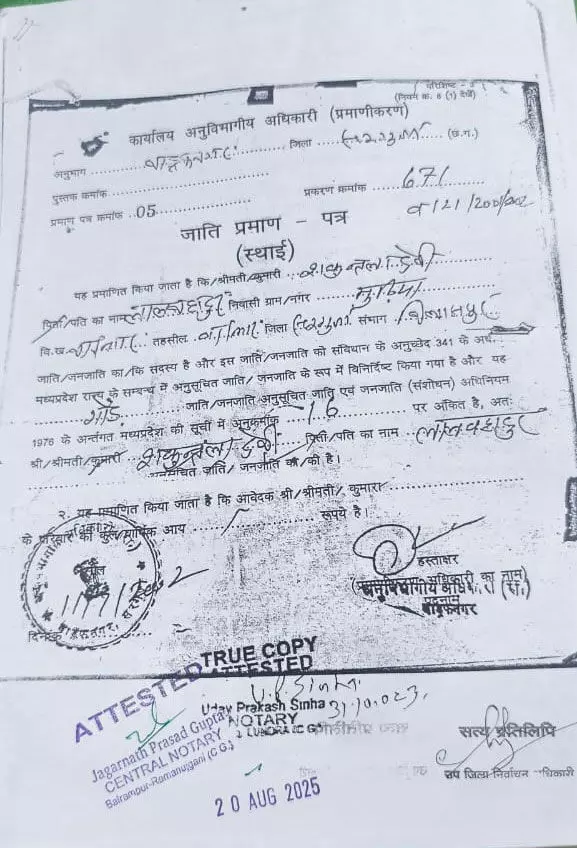 परिशिष्ट
(नियम क्र. 6 (1) देखें)
कार्यालय अनुविभागीय अधिकारी (प्रमाणीकरण)
अनुभाग जिला सरगुजा (छ.ग.)
पुस्तक कमांक
प्रकरण क्रमांक 671
प्रमाण पत्र कमांक 05
जाति प्रमाण - पत्र
(स्थाई)
यह प्रमाणित किया जाता है कि/श्रीमती/कुमारी शकुन्तला देवी
पिता/पति का नाम लालबहादुर निवासी ग्राम/नगर
वि.ख. तहसील जिला सरगुजा संभाग बिलासपुर
जाति/जनजाति का/कि सदस्य है और इस जाति/जनजाति को संविधान के अनुच्छेद 341 के अधीन
मध्यप्रदेश राज्य के सम्बन्ध में अनुसूचित जाति/ जनजाति के रूप में विनिर्दिष्ट किया गया है और यह
गोंड जाति/जनजाति अनुसूचित जाति एवं जनजाति (संशोधन) अधिनियम
1976 के अन्तर्गत मध्यप्रदेश की सूची में अनुकमांक 16 पर अंकित है, अतः
श्री/श्रीमती/कुमारी शकुन्तला देवी पिता/पति का नाम लालबहादुर
अनुसूचित जाति/ जनजाति का/की है।
२. यह प्रमाणित किया जाता है कि आवेदक श्री/श्रीमती/ कुमारी
के परिवार की कुल वार्षिक आय रूपये है।
हस्ताक्षर
पदनाम
दिनांक
TRUE COPY
ATTESTED
ATTESTED
U.P. Sinha
Uday Prakash Sinha 31.10.023.
NOTARY
LUNDRA (C.G.)
Jagarnath Prasad Gupta
CENTRAL NOTARY
Balrampur-Ramanujganj (C.G.)
20 AUG 2025
सत्य प्रतिलिपि
उप जिला निर्वाचन अधिकारी